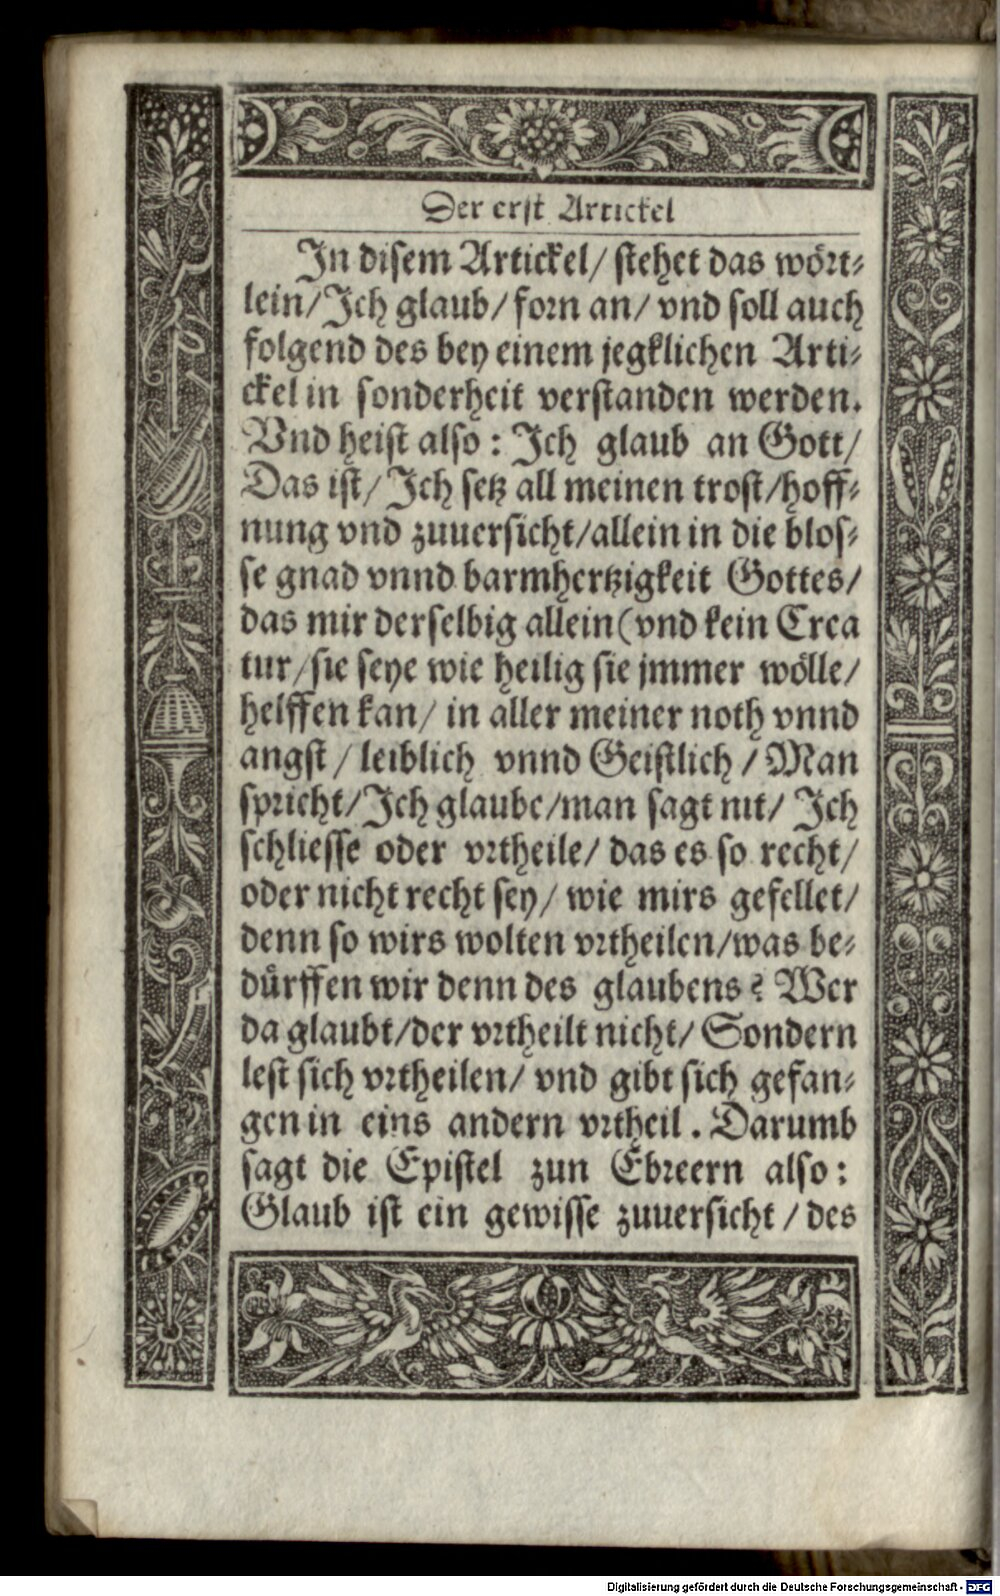 Der erst Artickel
In disem Artickel/ stehet das wört-
lein/ Ich glaub/ forn an/ vnd soll auch
folgend des bey einem jegklichen Arti-
ckel in sonderheit verstanden werden.
Vnd heist also: Ich glaub an Gott/
Das ist/ Ich setz all meinen trost/hoff-
nung vnd zuuersicht/allein in die blos-
se gnad vnnd barmhertzigkeit Gottes/
das mir derselbig allein (vnd kein Crea
tur/sie seye wie heilig sie jmmer wölle/
helffen kan/ in aller meiner noth vnnd
angst / leiblich vnnd Geistlich / Man
spricht/Ich glaube/man sagt nit/ Ich
schliesse oder vrtheile/ das es so recht/
oder nicht recht sey/ wie mirs gefellet/
denn so wirs wolten vrtheilen/was be-
dürffen wir denn des glaubens? Wer
da glaubt/der vrtheilt nicht/ Sondern
lest sich vrtheilen/ vnd gibt sich gefan-
gen in eins andern vrtheil. Darumb
sagt die Epistel zun Ebreern also:
Glaub ist ein gewisse zuuersicht / des
Digitalisierung gefördert durch die Deutsche Forschungsgemeinschaft - DFG